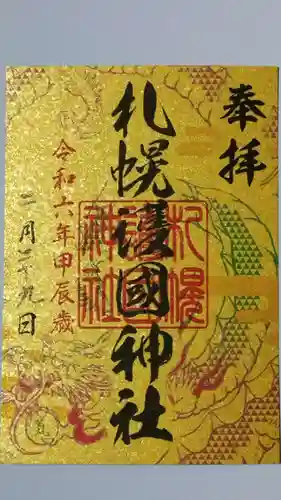 奉拝
札幌護國神社
札幌護國神社
令和六年甲辰歳
二月二十九日